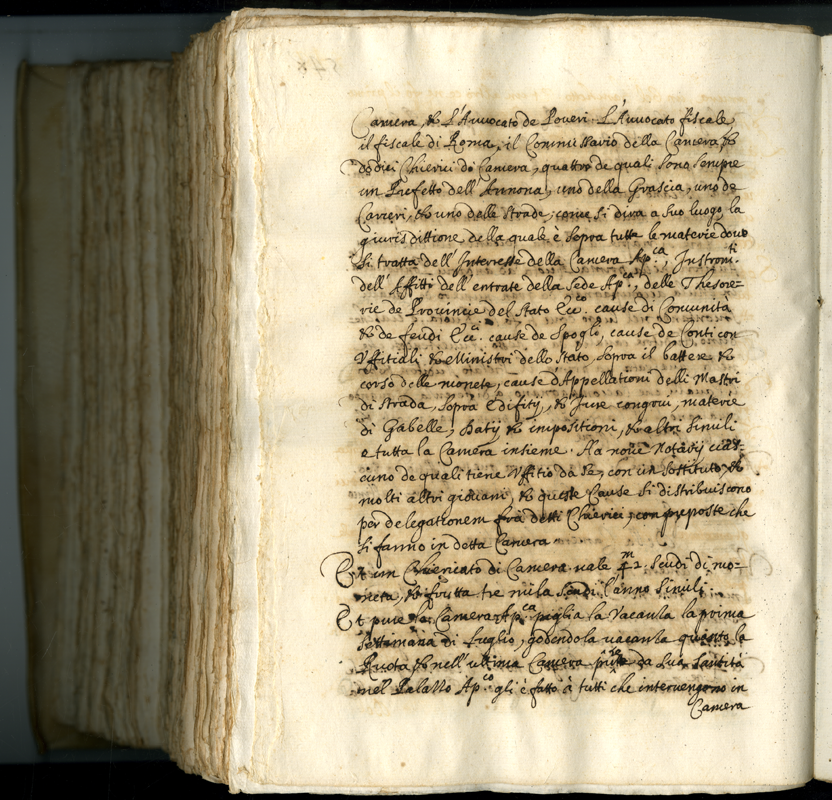 Camera, & l'Avvocato de Poveri. L'Avvocato fiscale
il fiscale di Roma, il Commissario della Camera, &
dodici Chierici di Camera, quattro de quali sono sempre
un Prefetto dell'Annona, uno della Grascia, uno de
Carceri, & uno delle strade, come si dira a suo luogo, la
giurisdittione della quale è sopra tutte le materie dove
si tratta dell'Interesse della Camera Ap.ca, Instrom.ti
dell'Affitti dell'entrate della Sede Ap.ca, delle Thesore=
rie de Provincie del Stato Ecc.co cause di Comunità
& de feudi Ecc.ci cause de Spogli, cause de Conti con
Uffitiali & Ministri dello stato, sopra il battere &
corso delle monete, cause d'Appellationi delli Mastri
di strada, sopra Edifitij, & Jure congrui, materie
di Gabelle, Datij & impositioni, & altri simili
e tutta la Camera insieme. Ha nove Notarij cias=
cuno de quali tiene Uffitio da se, con un sostituto &
molti altri giovani, & queste Cause si distribuiscono
per delegationem frà detti Chierici, con preposte che
si fanno in detta Camera
Et un Chiericato di Camera vale 42.m scudi di mo=
neta, & frutta tre mila scudi l'anno simili.
Et pure la Camera Ap.ca piglia la vacanza la prima
settimana di Luglio, godendola vacanza quanto la
Ruota & nell'ultima Camera da Sua Santità
nel Palazzo Ap.co gli è fatto à tutti che intervengono in
Camera